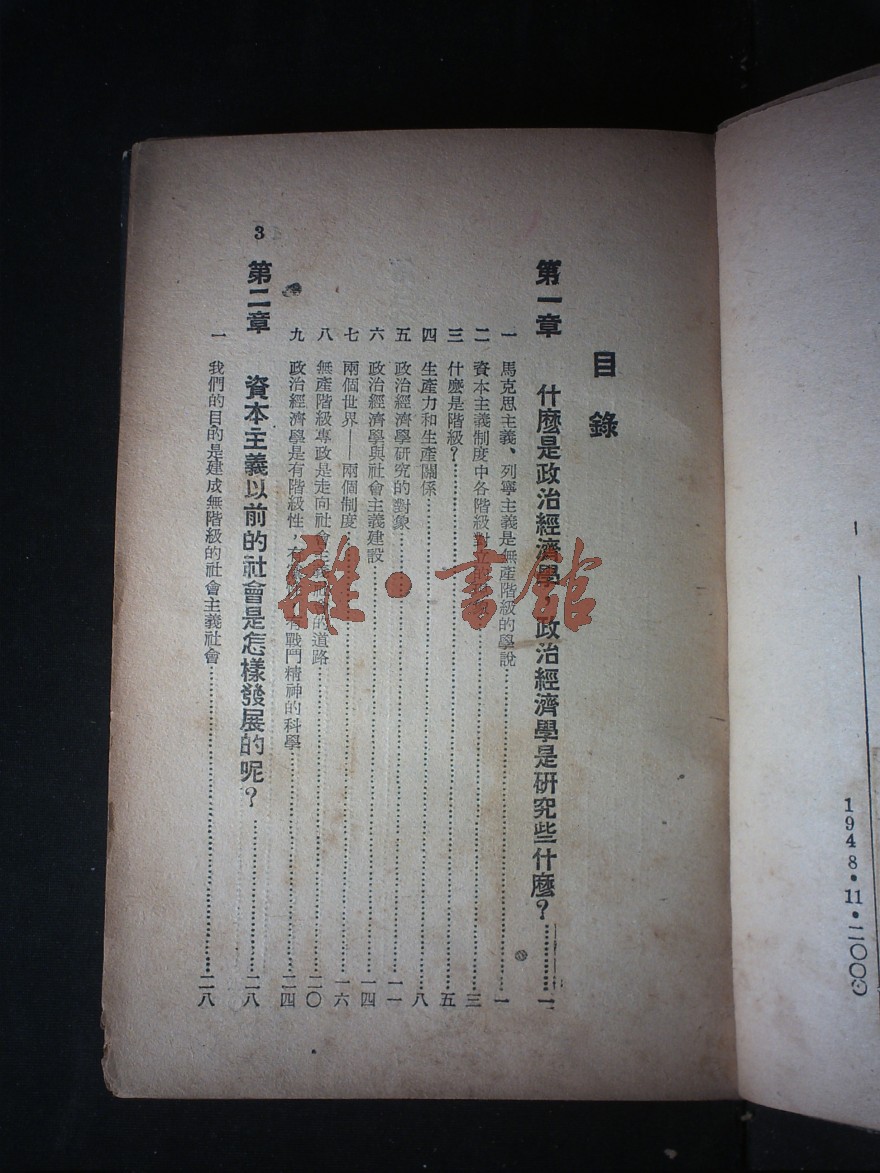 1948·11·二〇〇〇
目錄
第一章 什麼是政治經濟學，政治經濟學是研究些什麼？…………一
一 馬克思主義、列寧主義是無產階級的學說…………一
二 資本主義制度中各階級對立…………三
三 什麼是階級？…………五
四 生產力和生產關係…………八
五 政治經濟學研究的對象…………一一
六 政治經濟學與社會主義建設…………一四
七 兩個世界——兩個制度…………一六
八 無產階級專政是走向社會主義的道路…………二〇
九 政治經濟學是有階級性，有戰鬥精神的科學…………二四
第二章 資本主義以前的社會是怎樣發展的呢？…………二八
一 我們的目的是建成無階級的社會主義社會…………二八
3
雜·書館